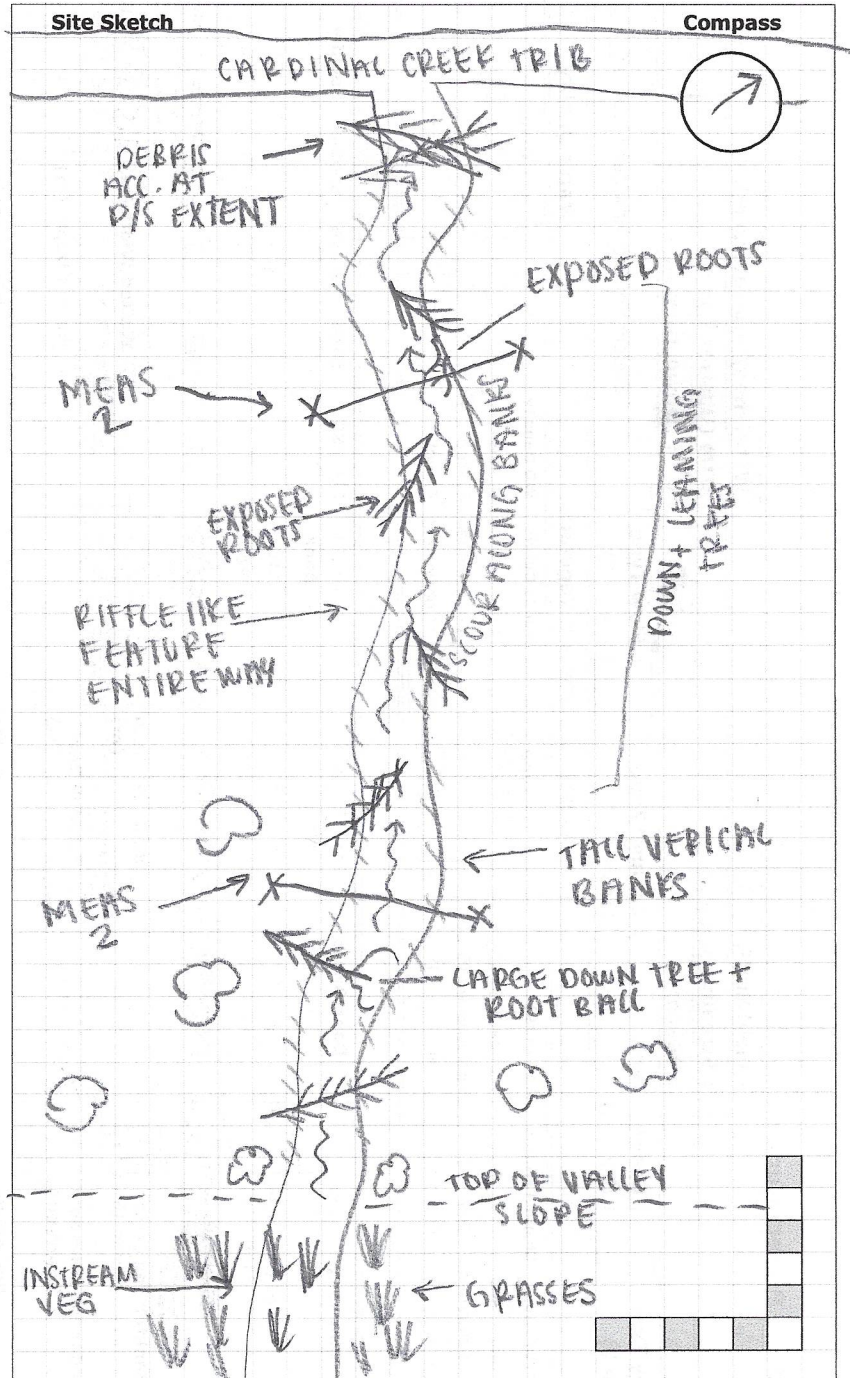 Site Sketch
Compass
CARDINAL CREEK TRIB
DEBRIS
ACC. AT
D/S EXTENT
EXPOSED ROOTS
MEAS
2
SCOUR ALONG BANKS
DOWN + LEANING
TREES
EXPOSED
ROOTS
RIFFLE LIKE
FEATURE
ENTIRE WAY
TALL VERICAL
BANKS
MEAS
2
LARGE DOWN TREE +
ROOT BALL
TOP OF VALLEY
SLOPE
INSTREAM
VEG
GRASSES